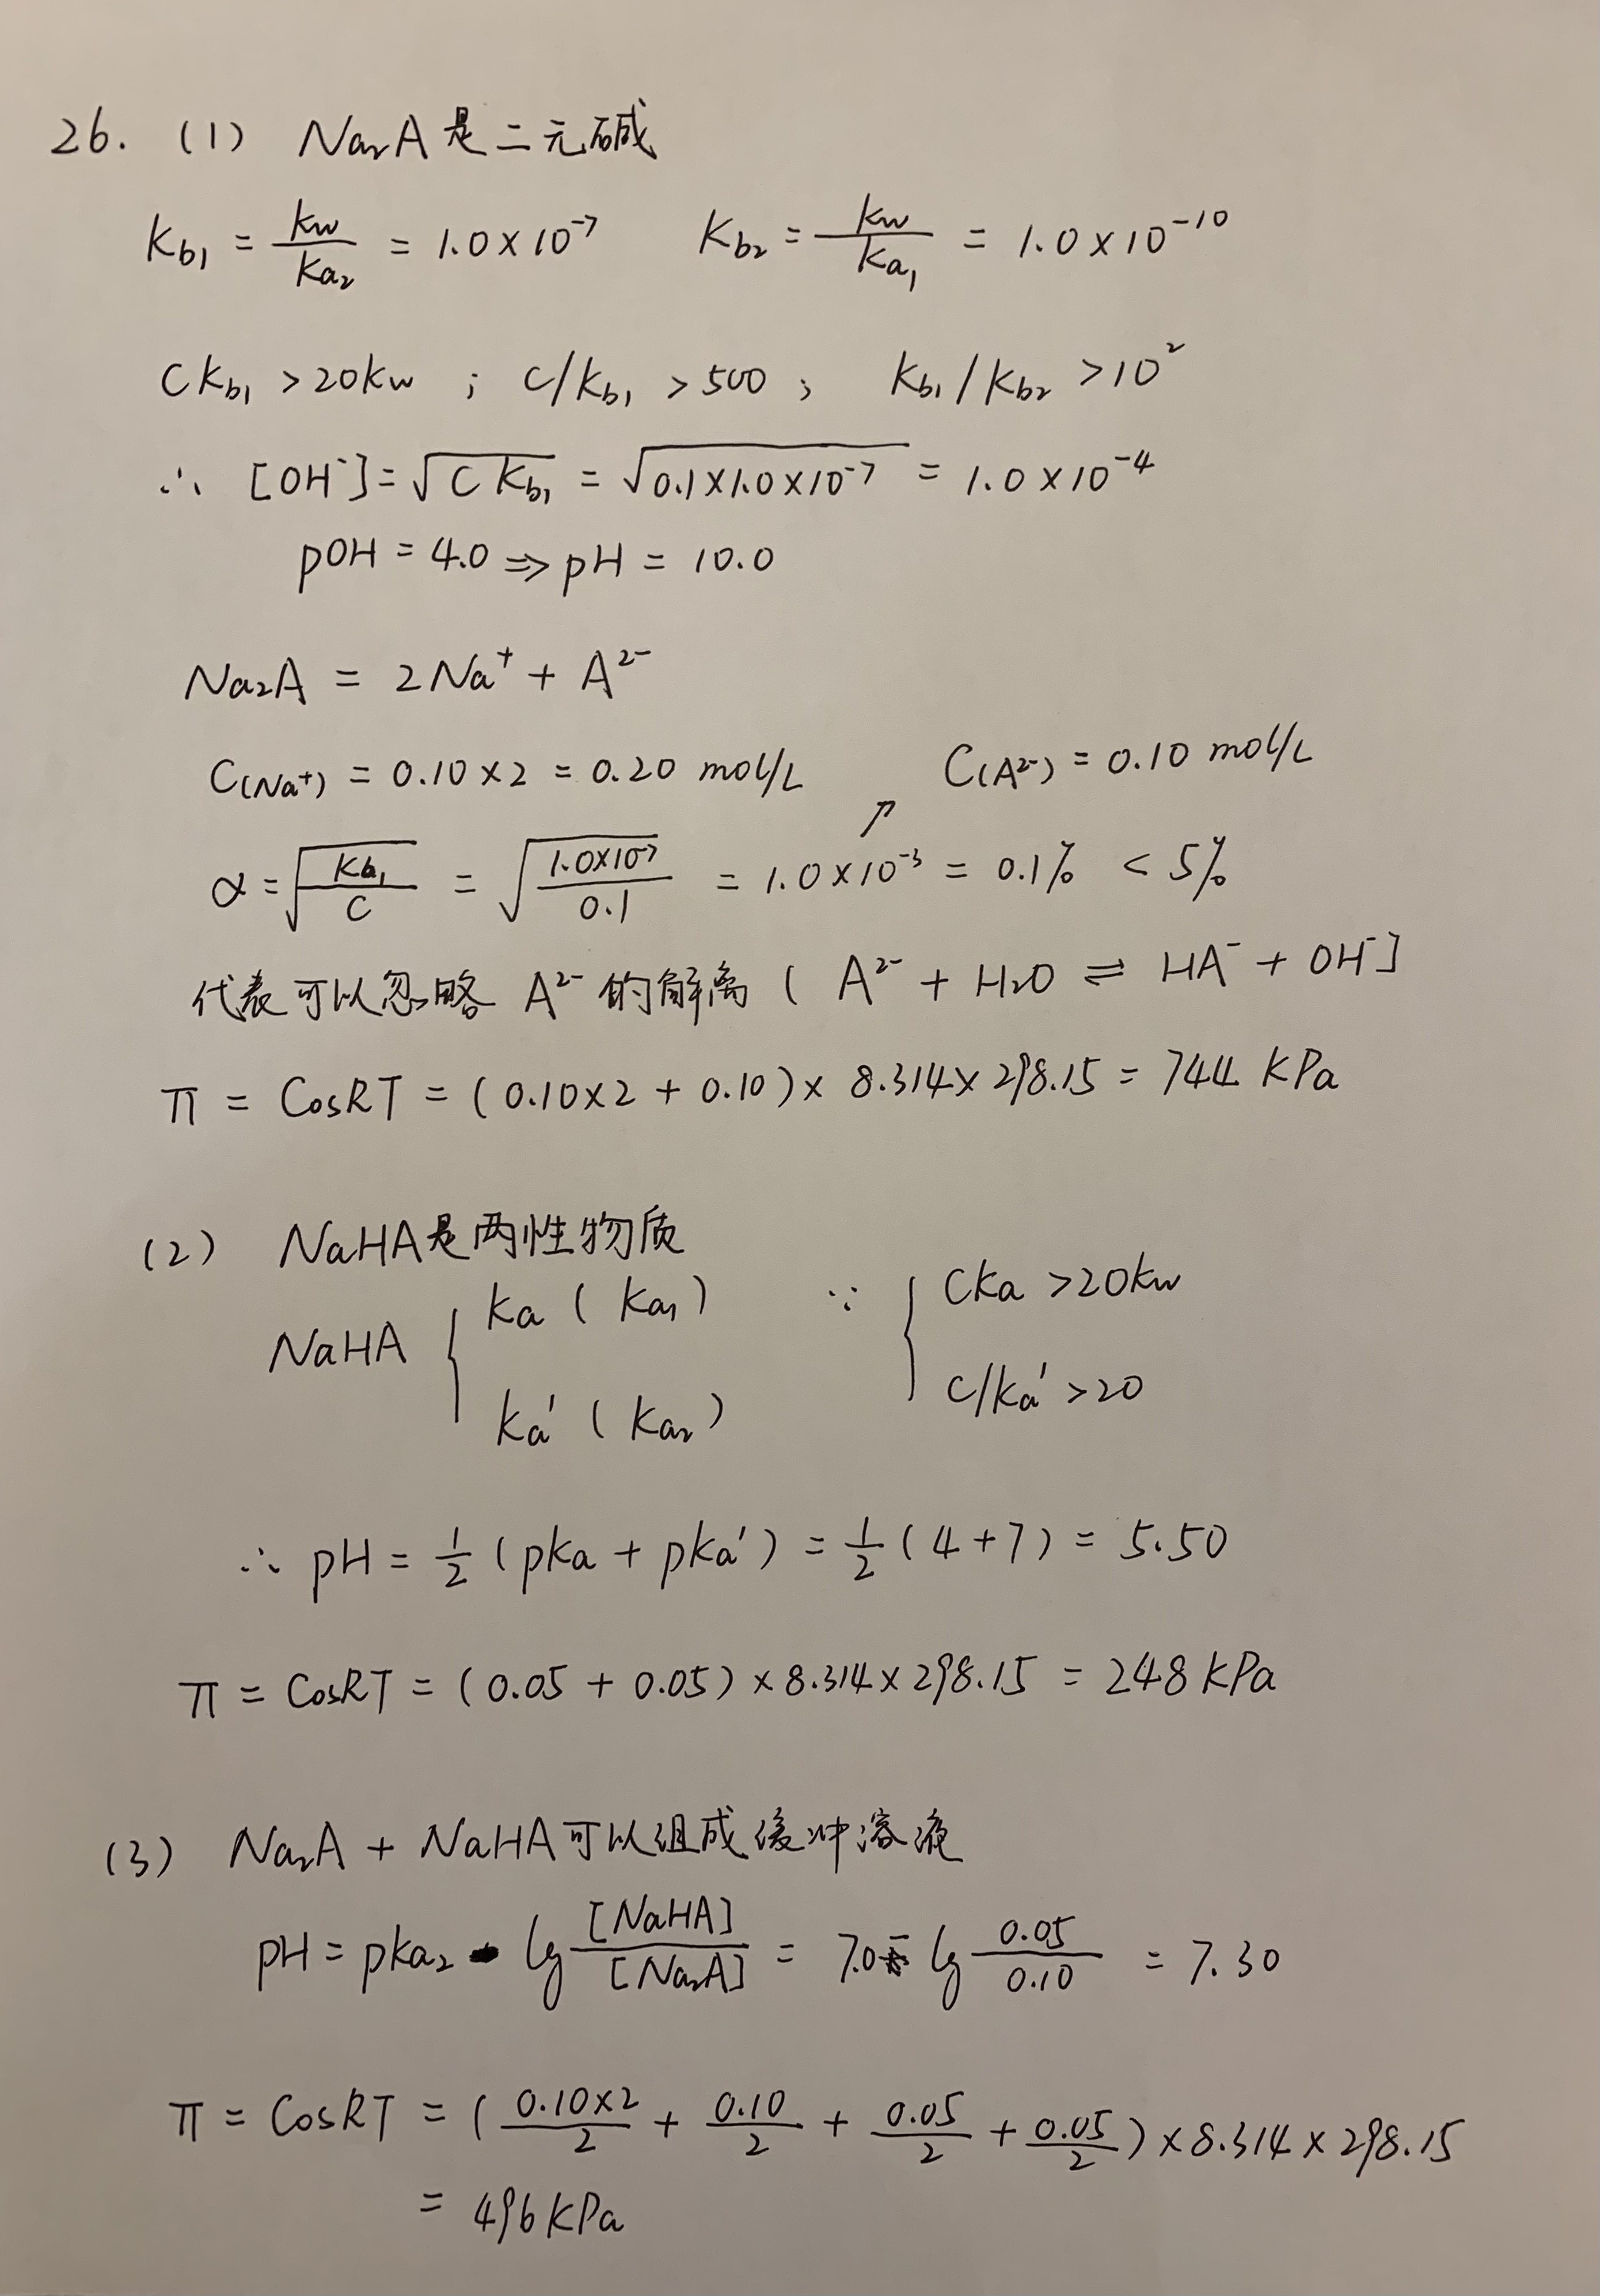 26. (1) Na₂A是二元碱
Kb₁ = kw/ka₂ = 1.0×10⁻⁷ Kb₂ = kw/ka₁ = 1.0×10⁻¹⁰
Ckb₁ >20kw ; C/kb₁ >500 ; kb₁/kb₂ >10²
∴ [OH⁻]=√(C Kb₁) = √(0.1×1.0×10⁻⁷) = 1.0×10⁻⁴
pOH = 4.0 ⇒ pH = 10.0
Na₂A = 2Na⁺ + A²⁻
C(Na⁺) = 0.10×2 = 0.20 mol/L ↗ C(A²⁻) = 0.10 mol/L
α = √(kb₁/C) = √(1.0×10⁻⁷/0.1) = 1.0×10⁻³ = 0.1% < 5%
代表可以忽略 A²⁻的解离 ( A²⁻ + H₂O ⇌ HA⁻ + OH⁻]
π = CosRT = (0.10×2 + 0.10)× 8.314×298.15 = 744 KPa
(2) NaHA是两性物质
NaHA { ka ( ka₁) ka' ( ka₂) ∵ { Cka >20kw C/ka' >20
∴ pH = 1/2 (pka + pka') = 1/2 (4+7) = 5.50
π = CosRT = (0.05 + 0.05)×8.314×298.15 = 248 KPa
(3) Na₂A + NaHA可以组成缓冲溶液
pH = pka₂ - lg [NaHA]/[Na₂A] = 7.0 - lg 0.05/0.10 = 7.30
π = CosRT = ( 0.10×2/2 + 0.10/2 + 0.05/2 + 0.05/2 )×8.314×298.15
= 496KPa